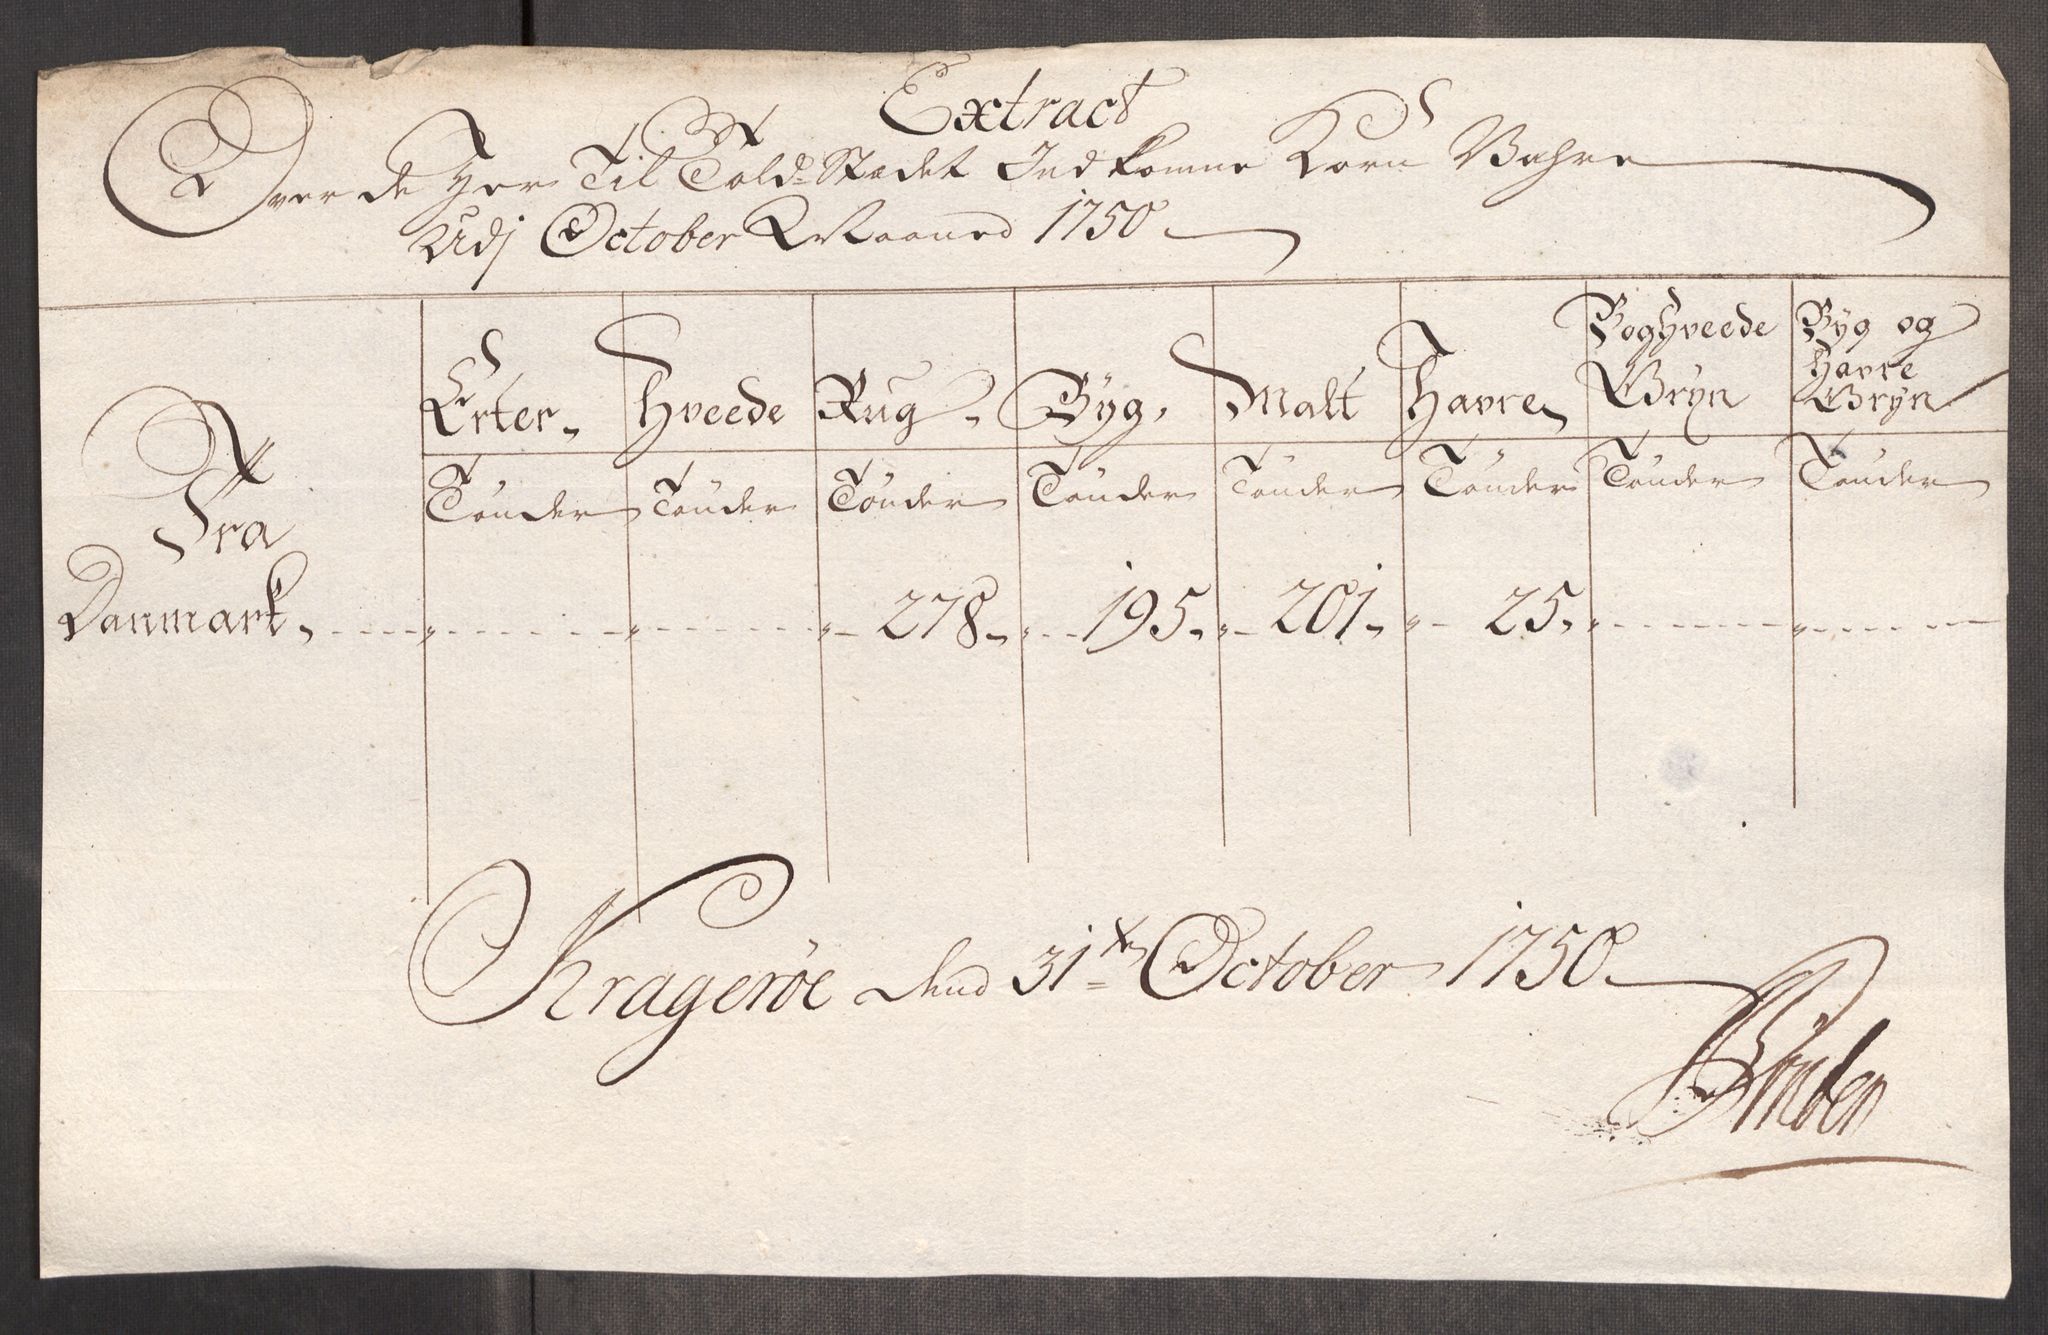 Extract
Over de Her Til Told-Stædet Indkomne Korn Vahre
Udj October Maaned 1750
Erter. Hveede Rug. Byg. Malt Havre Boghveede Gryn Byg og Havre Gryn
Tönder Tönder Tönder Tönder Tönder Tönder Tönder Tönder
Fra
Danmark. 278. 195. 201. 25.
Kragerøe dend 31te October 1750